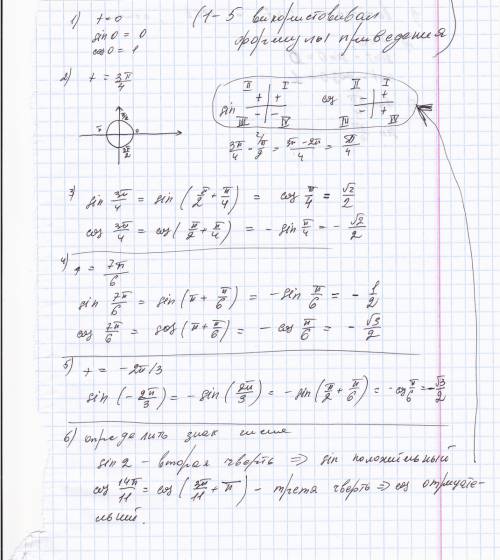 1) t=0
sin 0 = 0
cos 0 = 1
(1-5 використовивал
формулы приведения)
2) t = 3π/4
II I
sin + + - -
III IV
II I
cos - + - +
III IV
π/2
π 0
3π/2
3π/4 - π/2 = (3π-2π)/4 = π/4
3) sin 3π/4 = sin (π/2 + π/4) = cos π/4 = √2/2
cos 3π/4 = cos (π/2 + π/4) = - sin π/4 = - √2/2
4) t = 7π/6
sin 7π/6 = sin (π + π/6) = - sin π/6 = - 1/2
cos 7π/6 = cos (π + π/6) = - cos π/6 = - √3/2
5) t = -2π/3
sin (- 2π/3) = - sin (2π/3) = - sin (π/2 + π/6) = - cos π/6 = - √3/2
6) определить знак числа
sin 2 - вторая чверть ⇒ sin положительный
cos 14π/11 = cos (3π/11 + π) - третя чверть ⇒ cos отрицате-
льный.